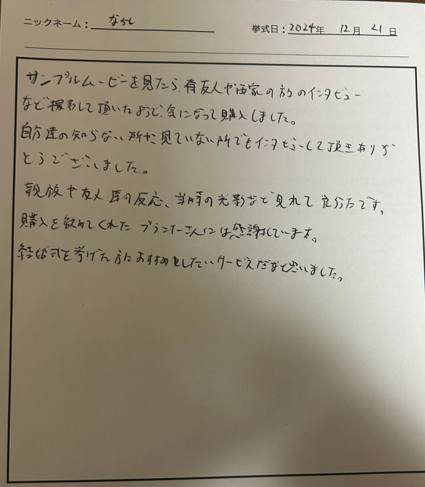 ニックネーム： ならし 挙式日：2024年 12月 21日
サンプルムービーを見たら、友人や両家の方のインタビュー
など撮影して頂いたようで、気になって購入しました。
自分達の知らない所や見ていない所でもインタビューして頂きありが
とうございました。
親族や友人達の反応、当時の光景など見れて良かったです。
購入を勧めてくれたプランナーさんには感謝しています。
結婚式を挙げた方におすすめをしたいサービスだなと思いました。